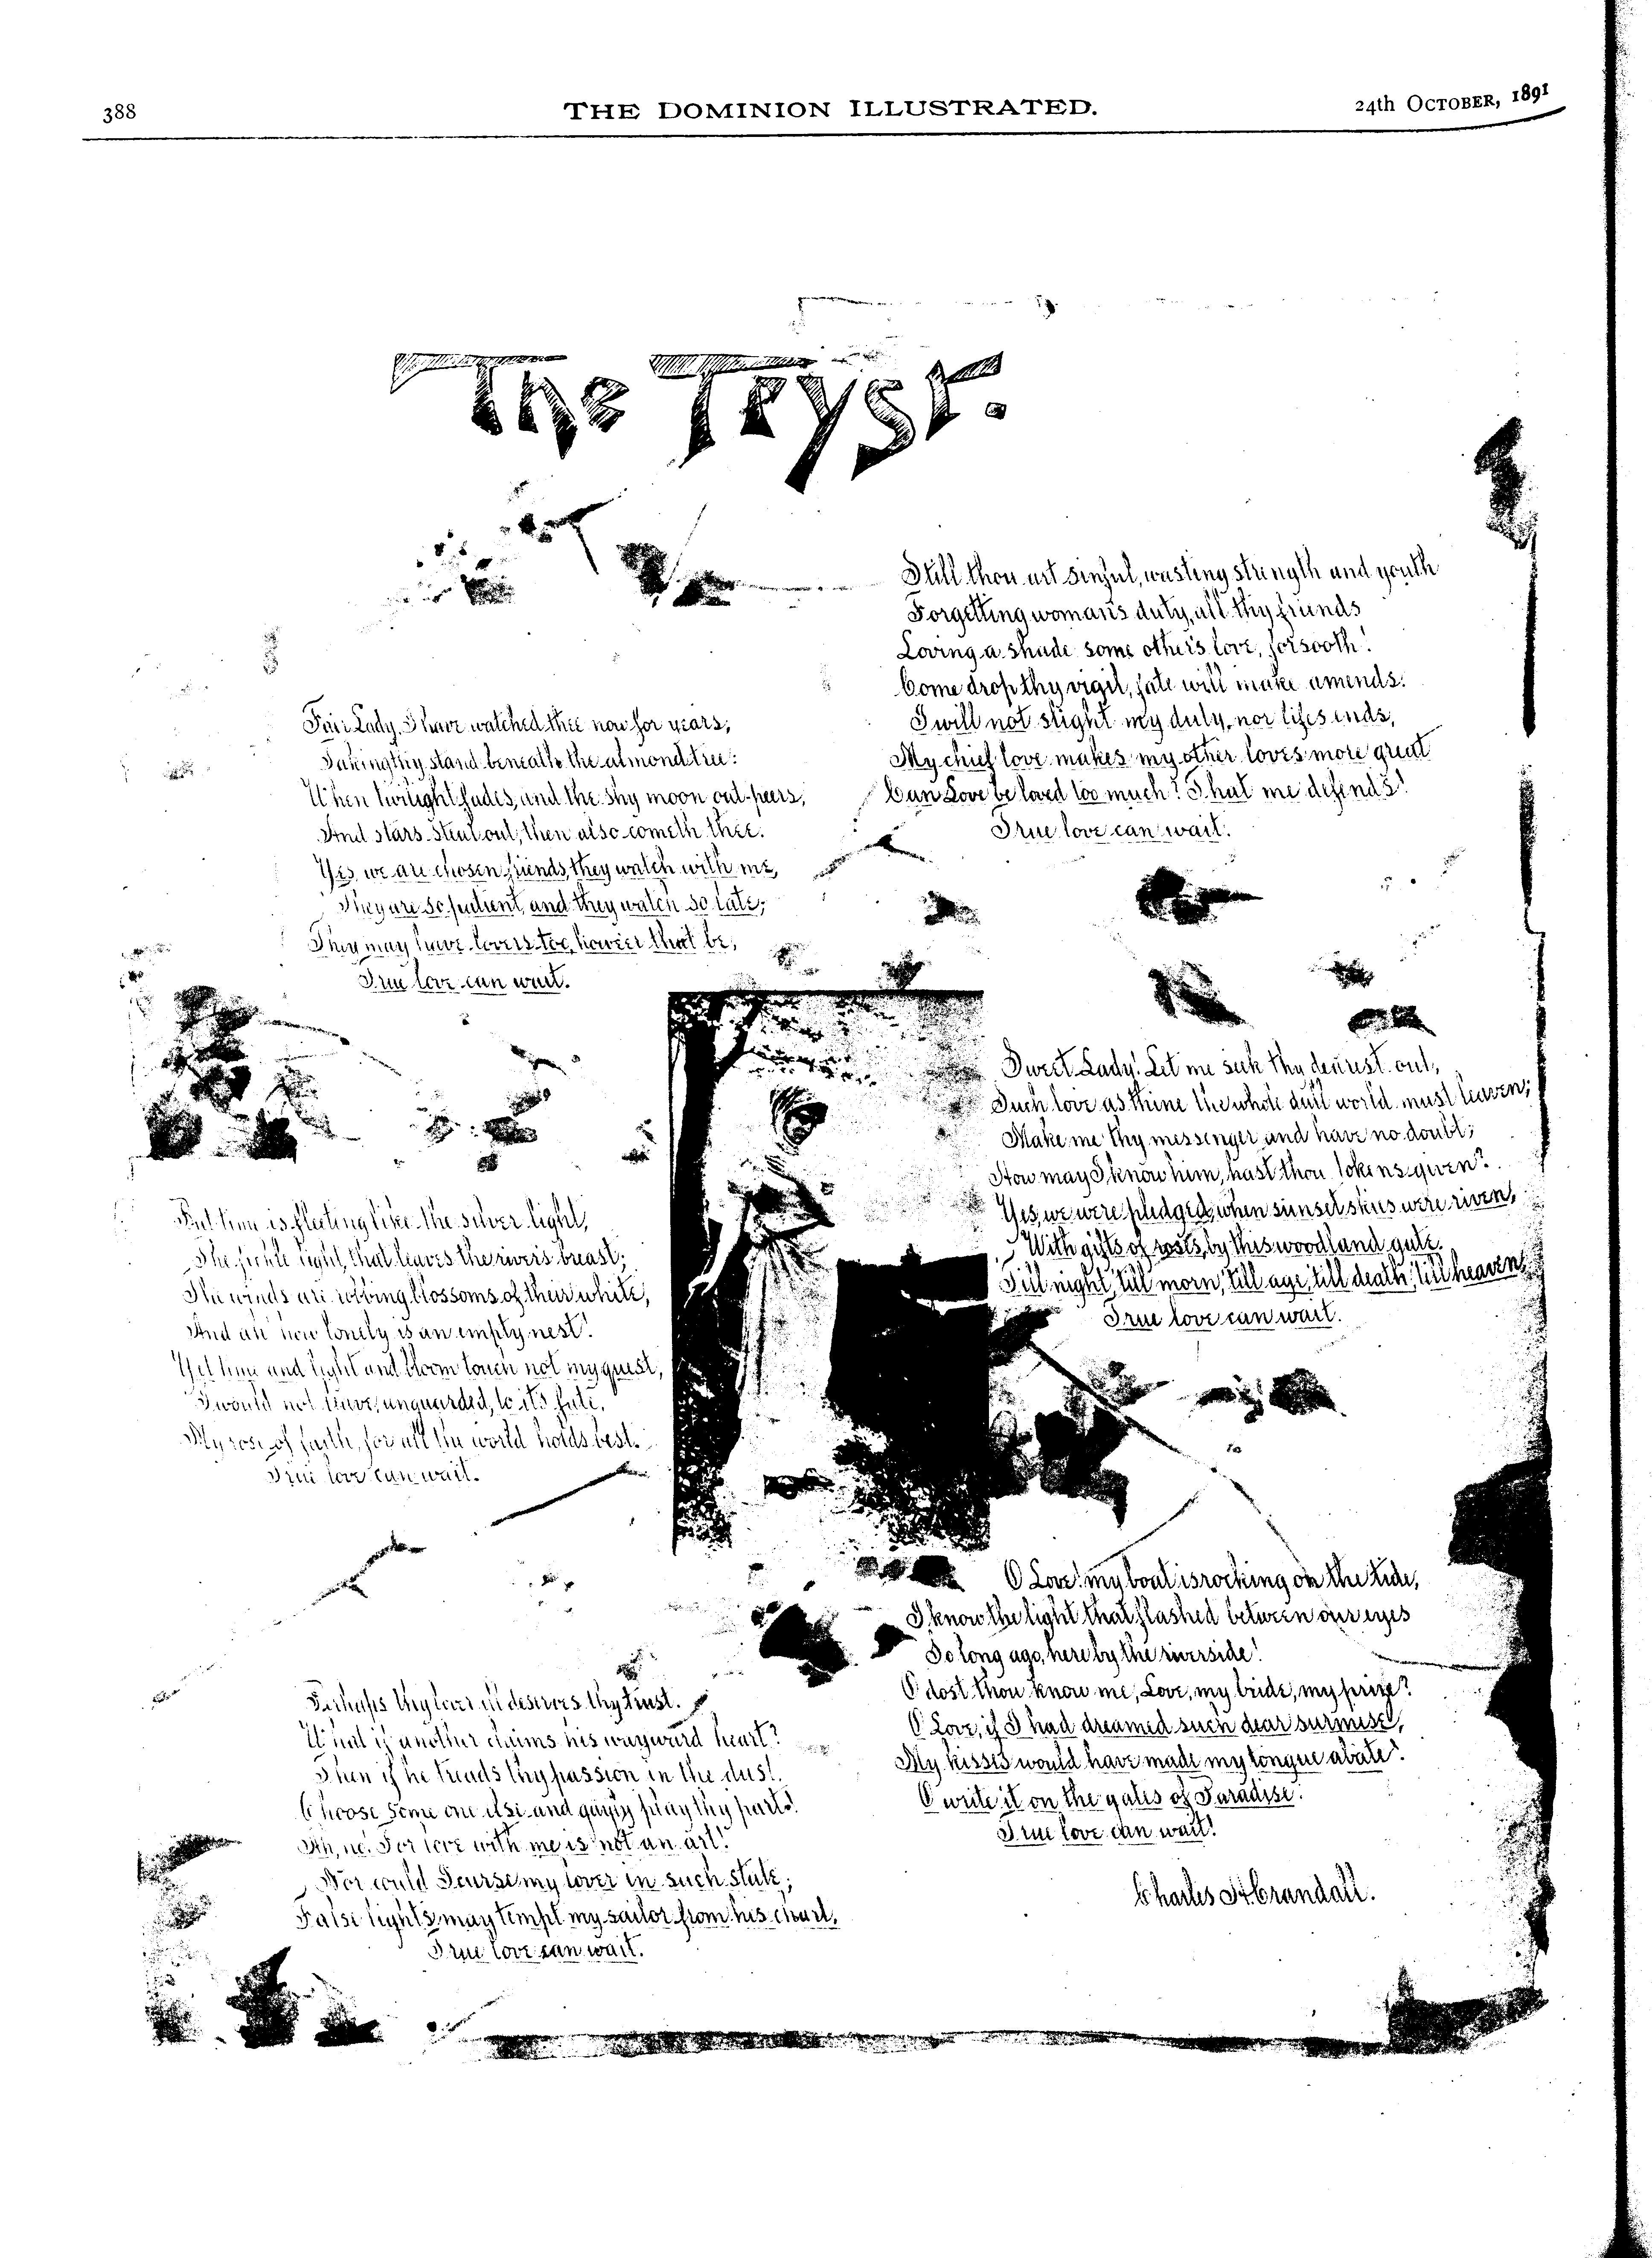 388
THE DOMINION ILLUSTRATED.
24th OCTOBER, 1891
The Tryst.
Fair Lady, I have watched thee now for years,
Taking thy stand beneath the almond tree:
When twilight fades, and the shy moon out-peers,
And stars steal out, then also cometh thee.
Yes, we are chosen friends, they watch with me,
They are so patient, and they watch so late;
They may have lovers too, howe'er that be,
True love can wait.
But time is fleeting like the silver light,
The fickle light, that leaves the river's breast;
The winds are robbing blossoms of their white,
And ah how lonely is an empty nest!
Yet time and light and bloom touch not my quest,
I would not leave, unguarded, to its fate,
My rose of faith, for all the world holds best.
True love can wait.
Perhaps thy lover ill deserves thy trust.
What if another claims his wayward heart?
Then if he treads thy passion in the dust,
Choose some one else and gayly play thy part!
Ah, no. For love with me is not an art!
Nor could I curse my lover in such state;
False lights may tempt my sailor from his chart,
True love can wait.
Still thou art sinful, wasting strength and youth
Forgetting woman's duty, all thy friends
Loving a shade some other's love, forsooth!
Come drop thy vigil, fate will make amends.
I will not slight my duty, nor lifes ends,
My chief love makes my other loves more great
Can Love be loved too much? That me defends!
True love can wait.
Sweet Lady! Let me seek thy dearest out,
Such love as thine the whole dull world must leaven;
Make me thy messenger and have no doubt;
How may I know him, hast thou tokens given?
Yes, we were pledged, when sunset skies were riven,
With gifts of roses, by this woodland gate.
Till night, till morn, till age, till death, till heaven,
True love can wait.
O Love! my boat is rocking on the tide,
I know the light that flashed between our eyes
So long ago, here by the riverside!
O dost thou know me, Love, my bride, my prize?
O Love, if I had dreamed such dear surmise,
My kisses would have made my tongue abate!
O write it on the gates of Paradise!
True love can wait!
Charles H. Crandall.